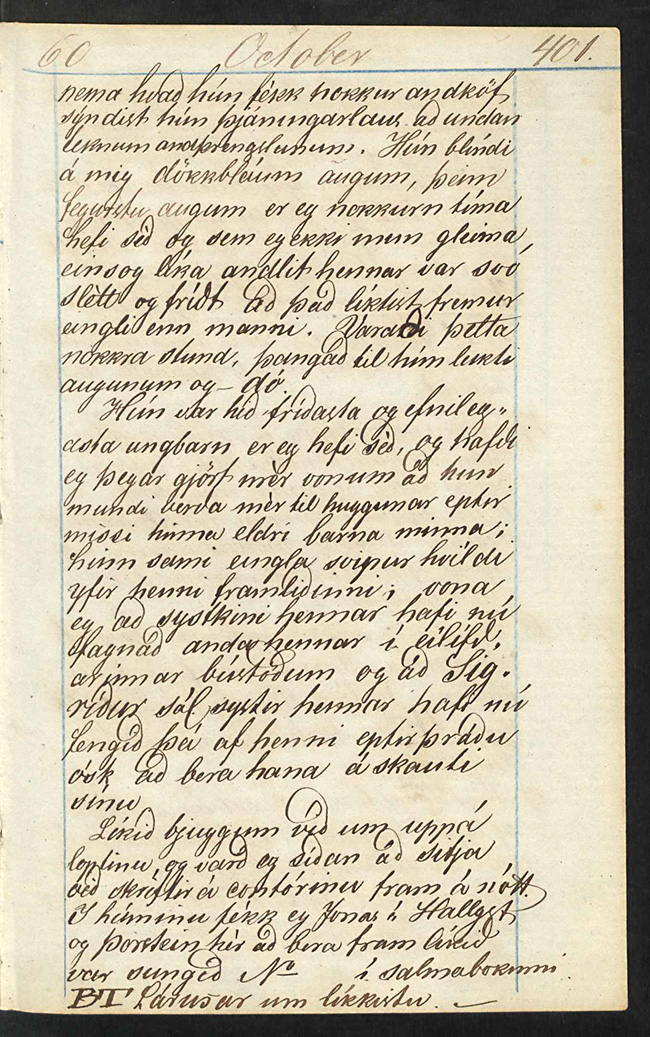 60 October 401.
nema hvað hún fékk nokkur andköf
syndist hún þjáningarlaus að undan
teknum andþrengslunum. Hún blíndi
á mig dökkbláum augum, þeim
fegurstu augum er eg nokkurn tíma
hefi séð og sem eg ekki mun gleima,
einsog líka andlit hennar var svo
slétt og frídt að það líktist fremur
eingli enn manni. Varaði þetta
nokkra stund, þangað til hún lukti
augunum og - dó.
Hún var hið fríðasta og efnileg-
asta ungbarn, er eg hefi séð, og hafði
eg þegar gjört mér vonum að hun
mundi verða mér til huggunar eptir
missi hinna eldri barna minna;
hinn sami eingla svipur hvíldi
yfir henni framliðinni; vona
eg að systkini hennar hafi nú
fagnað anda hennar í eilífð-
arinnar bústöðum og að Sig-
ríður sál systir hennar hafi nú
fengið þá af henni eptirþráðu
ósk að bera hana á skauti
sínu
Líkið bjuggum við um uppá
loptinu, og varð eg síðan að sitja
við skriftir á contórinu fram á nótt.
I húminu fékk eg Jonas í Hallgst
og Þorstein hér að bera fram líkið
var sungið No í salmabokinni
BT Lárusar um líkkistu. -